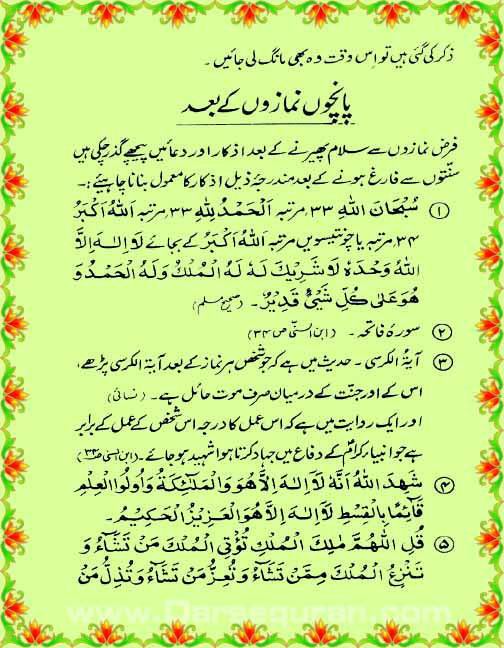 ذکر کی گئی ہیں تو اس وقت وہ بھی مانگ لی جائیں۔
پانچوں نمازوں کے بعد
فرض نمازوں سے سلام پھیرنے کے بعد اذکار اور دعائیں پیچھے گذر چکی ہیں
سنّتوں سے فارغ ہونے کے بعد مندرجۂ ذیل اذکار کا معمول بنانا چاہیئے :۔
① سُبْحَانَ اللّٰهِ ۳۳ مرتبہ اَلْحَمْدُ لِلّٰهِ ۳۳ مرتبہ اَللّٰهُ اَكْبَرُ
۳۴ مرتبہ یا چونتیسویں مرتبہ اَللّٰهُ اَكْبَرُ کے بجائے لَا اِلٰهَ اِلَّا
اللّٰهُ وَحْدَهٗ لَا شَرِيْكَ لَهٗ لَهُ الْمُلْكُ وَلَهُ الْحَمْدُ وَ
هُوَ عَلٰى كُلِّ شَيْءٍ قَدِيْرٌ۔ (صحیح مسلم)
② سورۂ فاتحہ۔ (ابن السنّی ص ۳۴)
③ آیۃ الکرسی۔ حدیث میں ہے کہ جو شخص ہر نماز کے بعد آیۃ الکرسی پڑھے،
اس کے اور جنت کے درمیان صرف موت حائل ہے۔ (نسائی)
اور ایک روایت میں ہے کہ اس عمل کا درجہ اس شخص کے عمل کے برابر
ہے جو انبیاء کرامؑ کے دفاع میں جہاد کرتا ہوا شہید ہو جائے۔ (ابن السنی ص ۳۴)
④ شَهِدَ اللّٰهُ اَنَّهٗ لَا اِلٰهَ اِلَّا هُوَ وَالْمَلٰٓئِكَةُ وَاُولُوا الْعِلْمِ
قَآئِمًا بِالْقِسْطِ لَا اِلٰهَ اِلَّا هُوَ الْعَزِيْزُ الْحَكِيْمُ۔
⑤ قُلِ اللّٰهُمَّ مٰلِكَ الْمُلْكِ تُؤْتِي الْمُلْكَ مَنْ تَشَآءُ وَ
تَنْزِعُ الْمُلْكَ مِمَّنْ تَشَآءُ وَتُعِزُّ مَنْ تَشَآءُ وَتُذِلُّ مَنْ
www.Darsequran.com